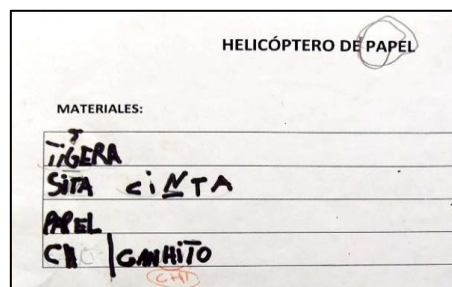 HELICÓPTERO DE PAPEL
MATERIALES:
TIGERA
SITA CINTA
PAPEL
GANHITO
CHI